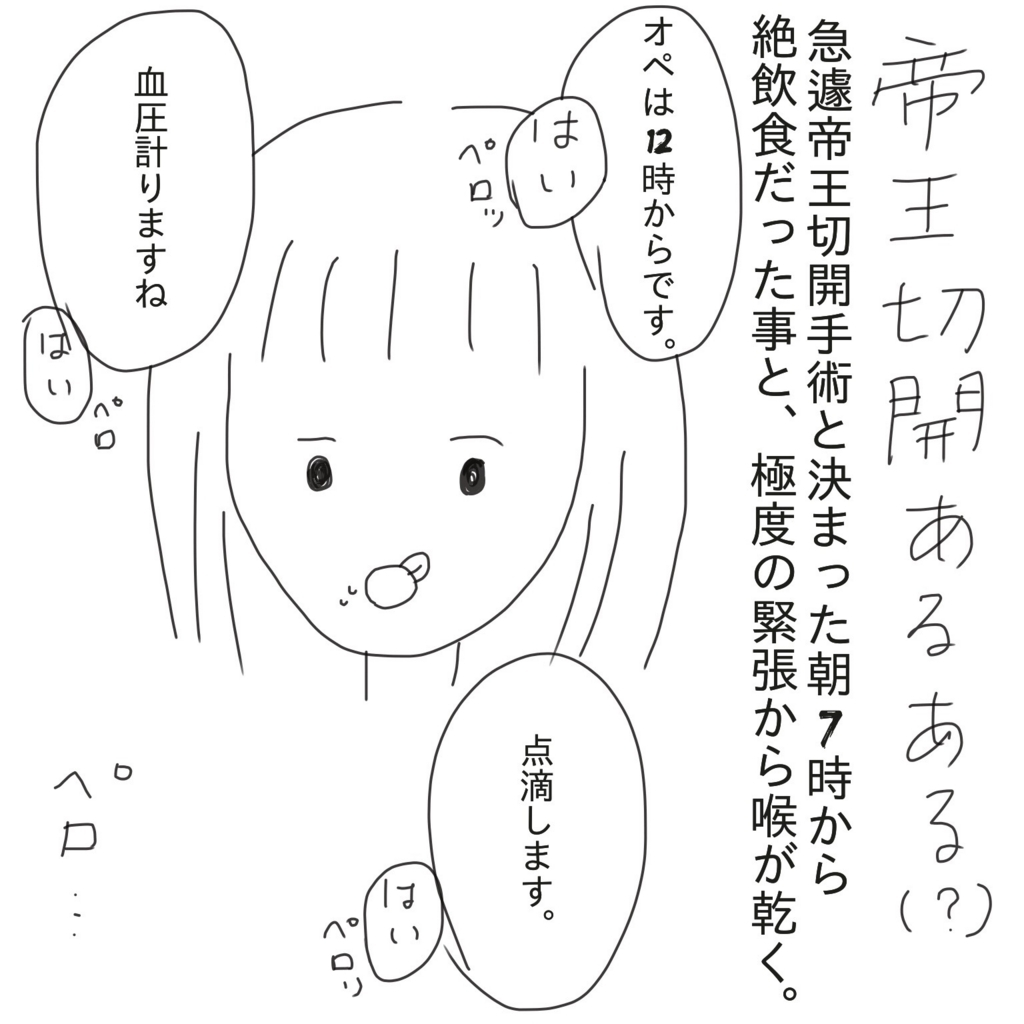 帝王切開あるある(?)
急遽帝王切開手術と決まった朝7時から
絶飲食だった事と、極度の緊張から喉が乾く。
オペは12時からです。
はい
ペロッ
血圧計りますね
はい
ペロ
点滴します。
はい
ペロリ
ペロ…